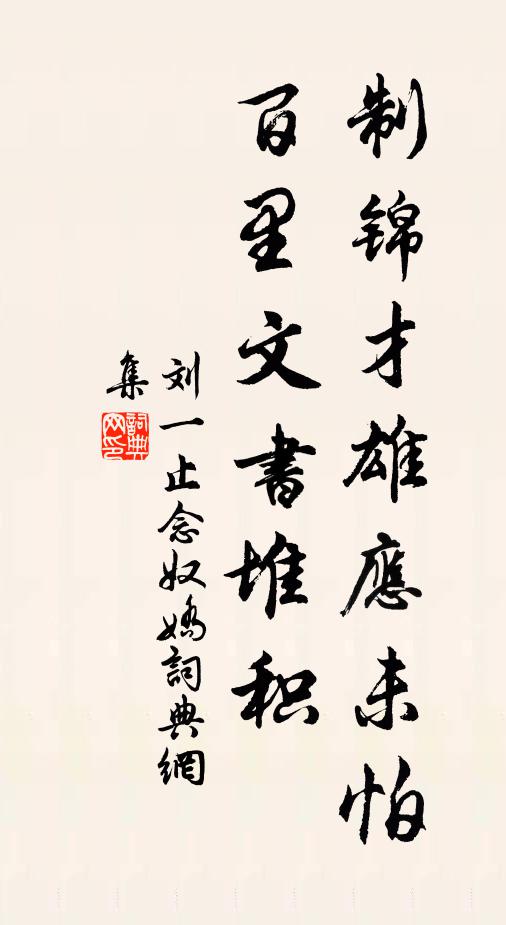 制锦才雄應未怕
百里文書堆积
刘一止念奴嬌詞典網
集
詞典
网印